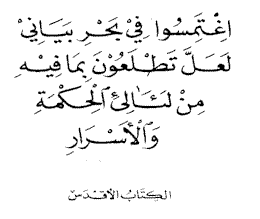 اِغْتَمِسُوا فِيْ بَحْرِ بَيَانِيْ
لَعَلَّ تَطْلَعُوْنَ بِمَا فِيْهِ
مِنْ لَئَالِئِ الْحِكْمَةِ
وَالْأَسْرَارِ
الكِتَابُ الأَقْدَسْ